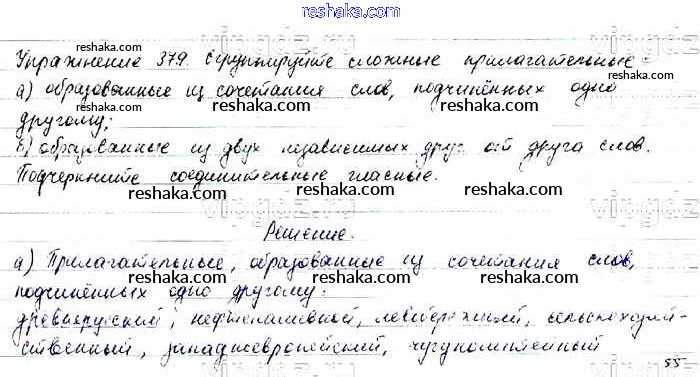 reshaka.com
Упражнение 379. Сгруппируйте сложные прилагательные:
а) образованные из сочетания слов, подчинённых одно
другому;
б) образованные из двух независимых друг от друга слов.
Подчеркните соединительные гласные.
Решение.
а) Прилагательные, образованные из сочетания слов,
подчинённых одно другому:
древнерусский, нефтеналивной, левобережный, сельскохозяй-
ственный, западноевропейский, чугунолитейный
55